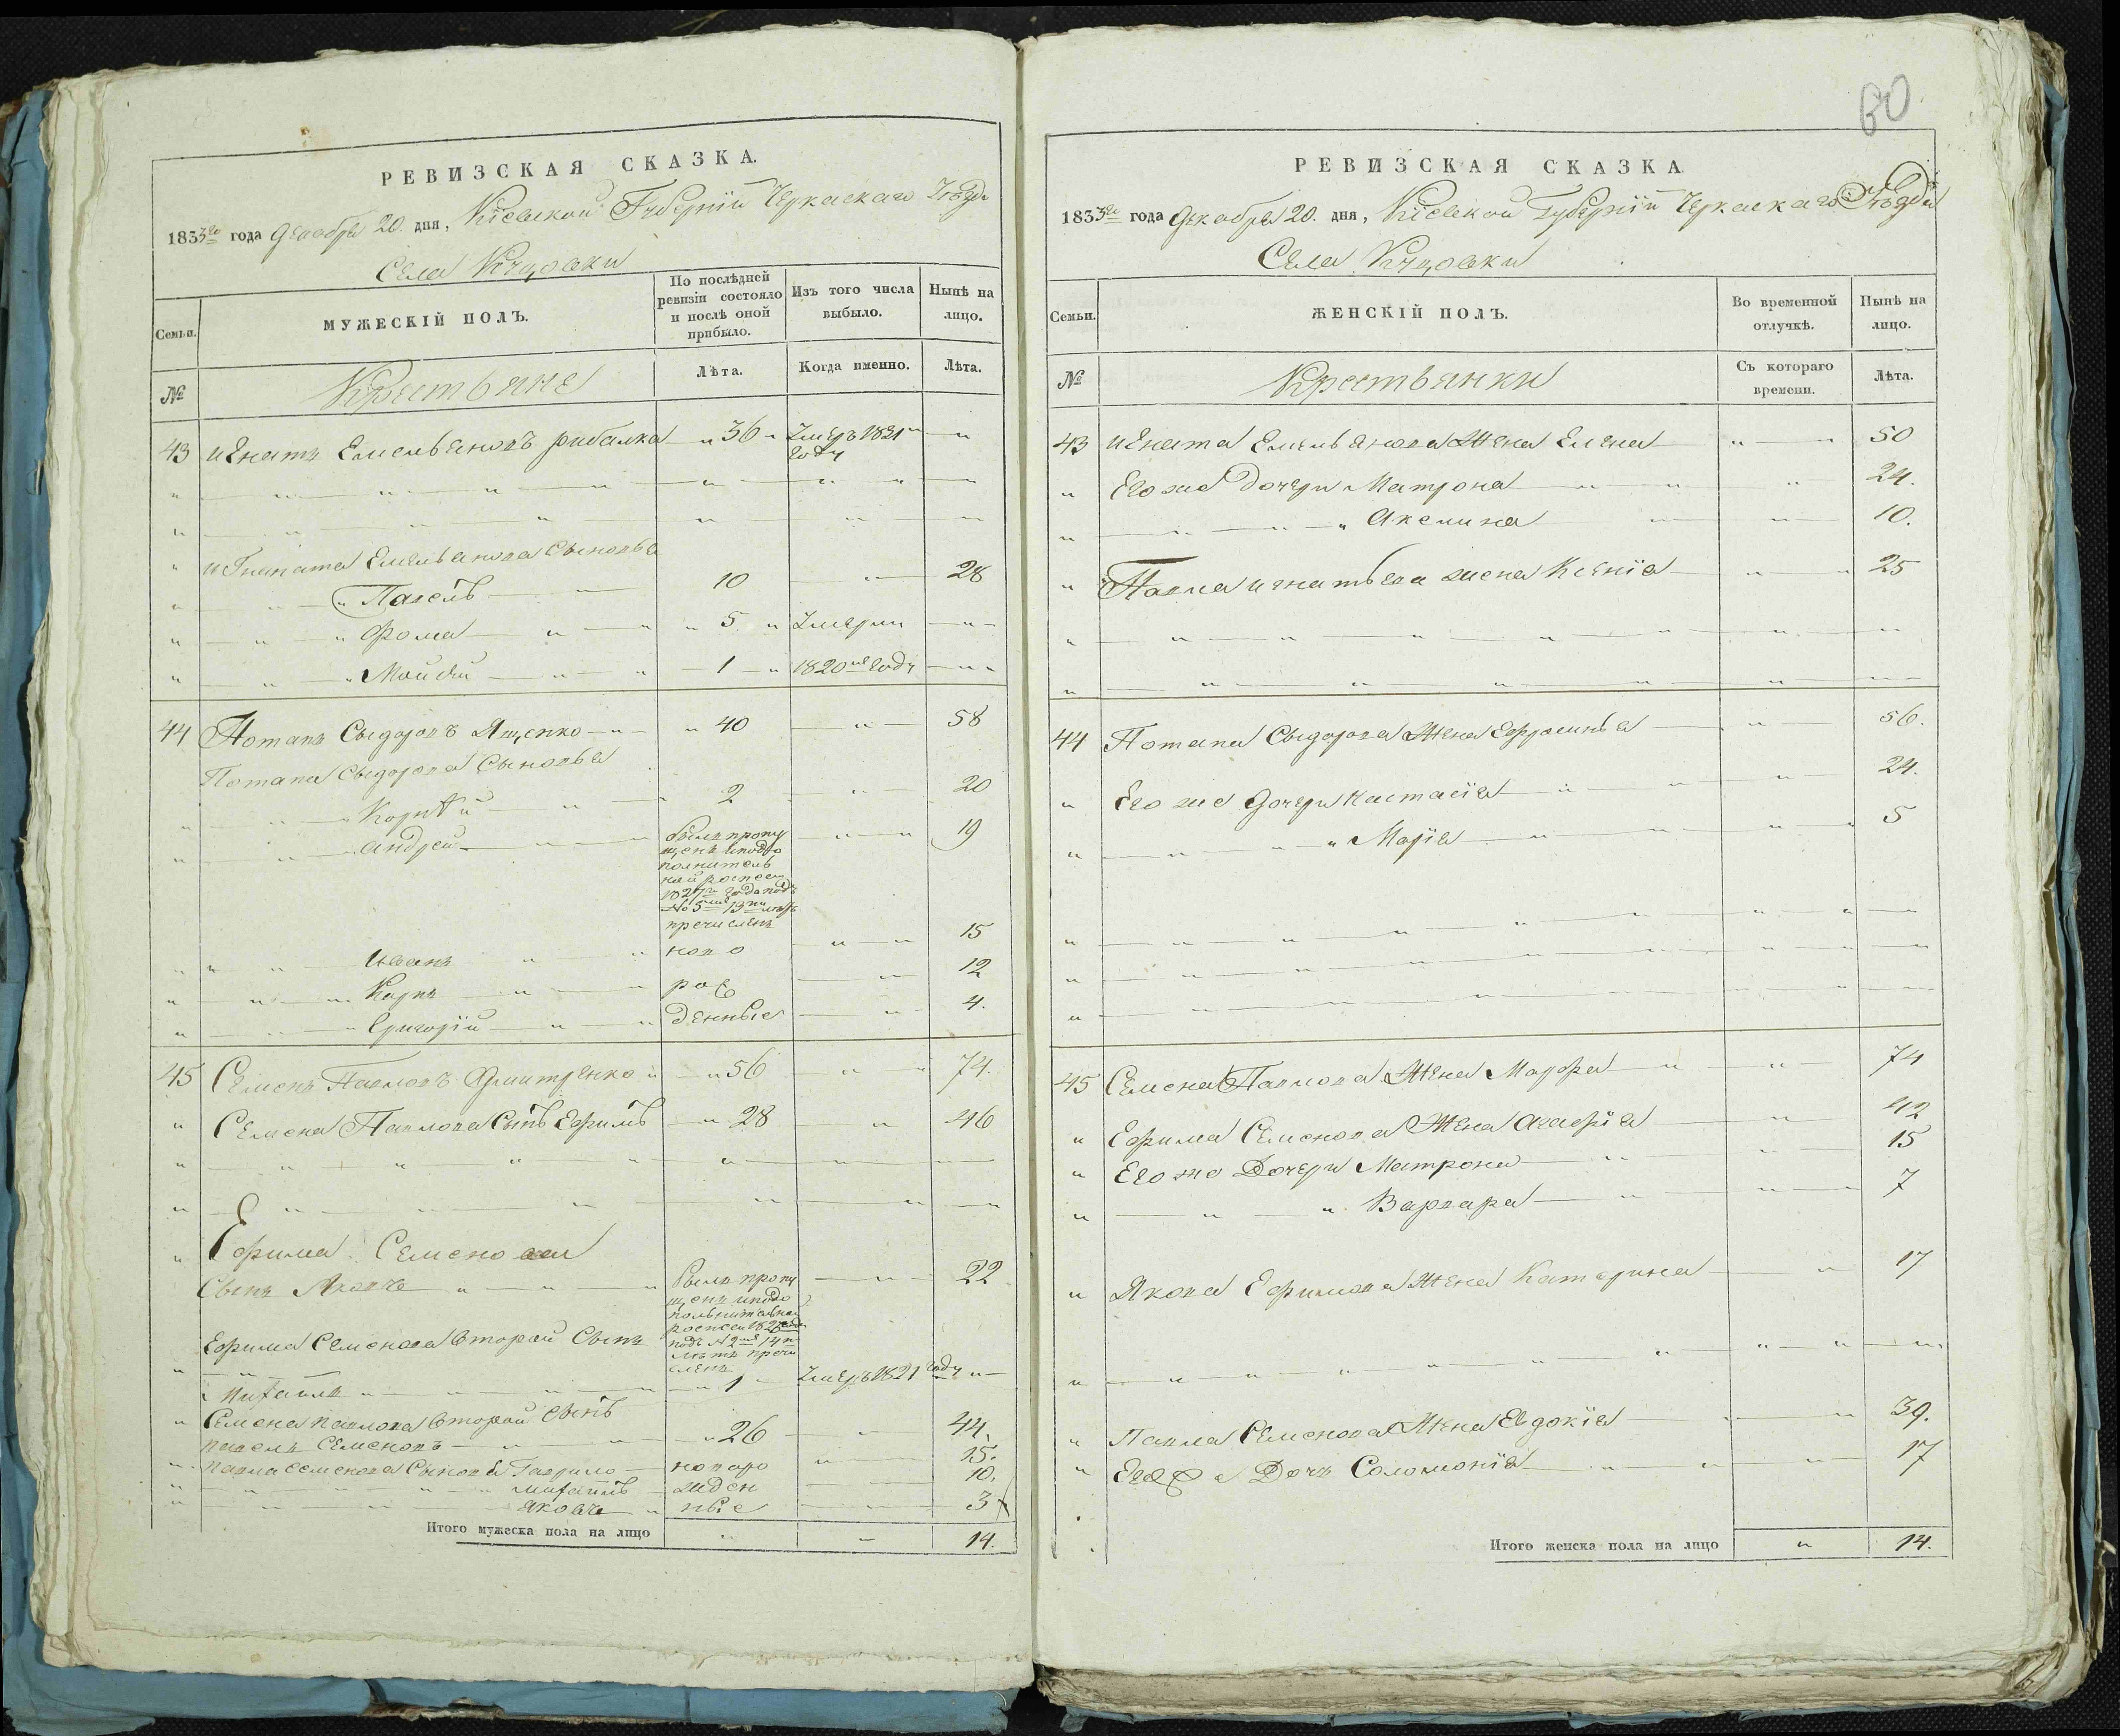 РЕВИЗСКАЯ СКАЗКА.
1833го года Декабря 20. дня, Кіевской Губерніи Черкаскаго Уѣзда
Села Куцовки
Семьи.
МУЖЕСКІЙ ПОЛЪ.
По послѣдней ревизіи состояло и послѣ оной прибыло.
Изъ того числа выбыло.
Нынѣ на лицо.
№
Крестьяне
Лѣта.
Когда именно.
Лѣта.
43 Игнатъ Емельяновъ рибалка 36 Умеръ 1831
году
Игната Емельянова Сыновья
Павелъ 10 28
Фома 5 Умерли
Мойсей 1 1820 году
44 Потапъ Сыдоровъ Ященко 40 58
Потапа Сыдорова Сыновья
Корнѣй 2 20
Андрей былъ пропу 19
щенъ и по до
полнитель
ной
1827 года подъ
№ 5
пречисленъ
Иванъ ново 15
Карпъ рож 12
Григорій денные 4.
45 Семенъ Павловъ Дмитренко 56 74.
Семена Павлова Сынъ Ефимъ 28 46
Ефима Семенова
Сынъ Яковъ былъ пропу 22
щенъ и по до
полнительной
подъ № 2 14
летъ пречи
сленъ
Ефима Семенова второй Сынъ
Михаилъ 1 Умеръ 1821 году
Семена Павлова второй Сынъ
Павелъ Семеновъ 26 44.
Павла Семенова Сыновья Гаврило новоро 15.
Михаилъ жден 10.
Яковъ ные 3
Итого мужеска пола на лицо 14.
60
РЕВИЗСКАЯ СКАЗКА.
1833го года Декабря 20. дня, Кіевской Губерніи Черкаскаго Уѣзда
Села Куцовки
Семьи.
ЖЕНСКІЙ ПОЛЪ.
Во временной отлучкѣ.
Нынѣ на лицо.
№
Крестьянки
Съ котораго времени.
Лѣта.
43 Игната Емельянова Жена Елена 50
Его же Дочери Матрона 24.
Аксинна 10.
Павла Игнатьева жена Ксенія 25
44 Потапа Сыдорова Жена Ефросинья 56.
Его же Дочери Настасія 24.
Марія 5
45 Семена Павлова Жена Марфа 74
Ефима Семенова Жена Агафія 42
Его же Дочери Матрона 15
Варвара 7
Якова Ефимова Жена Катерина 17
Павла Семенова Жена Евдокія 39.
Дочь Соломонія 17
Итого женска пола на лицо 14.